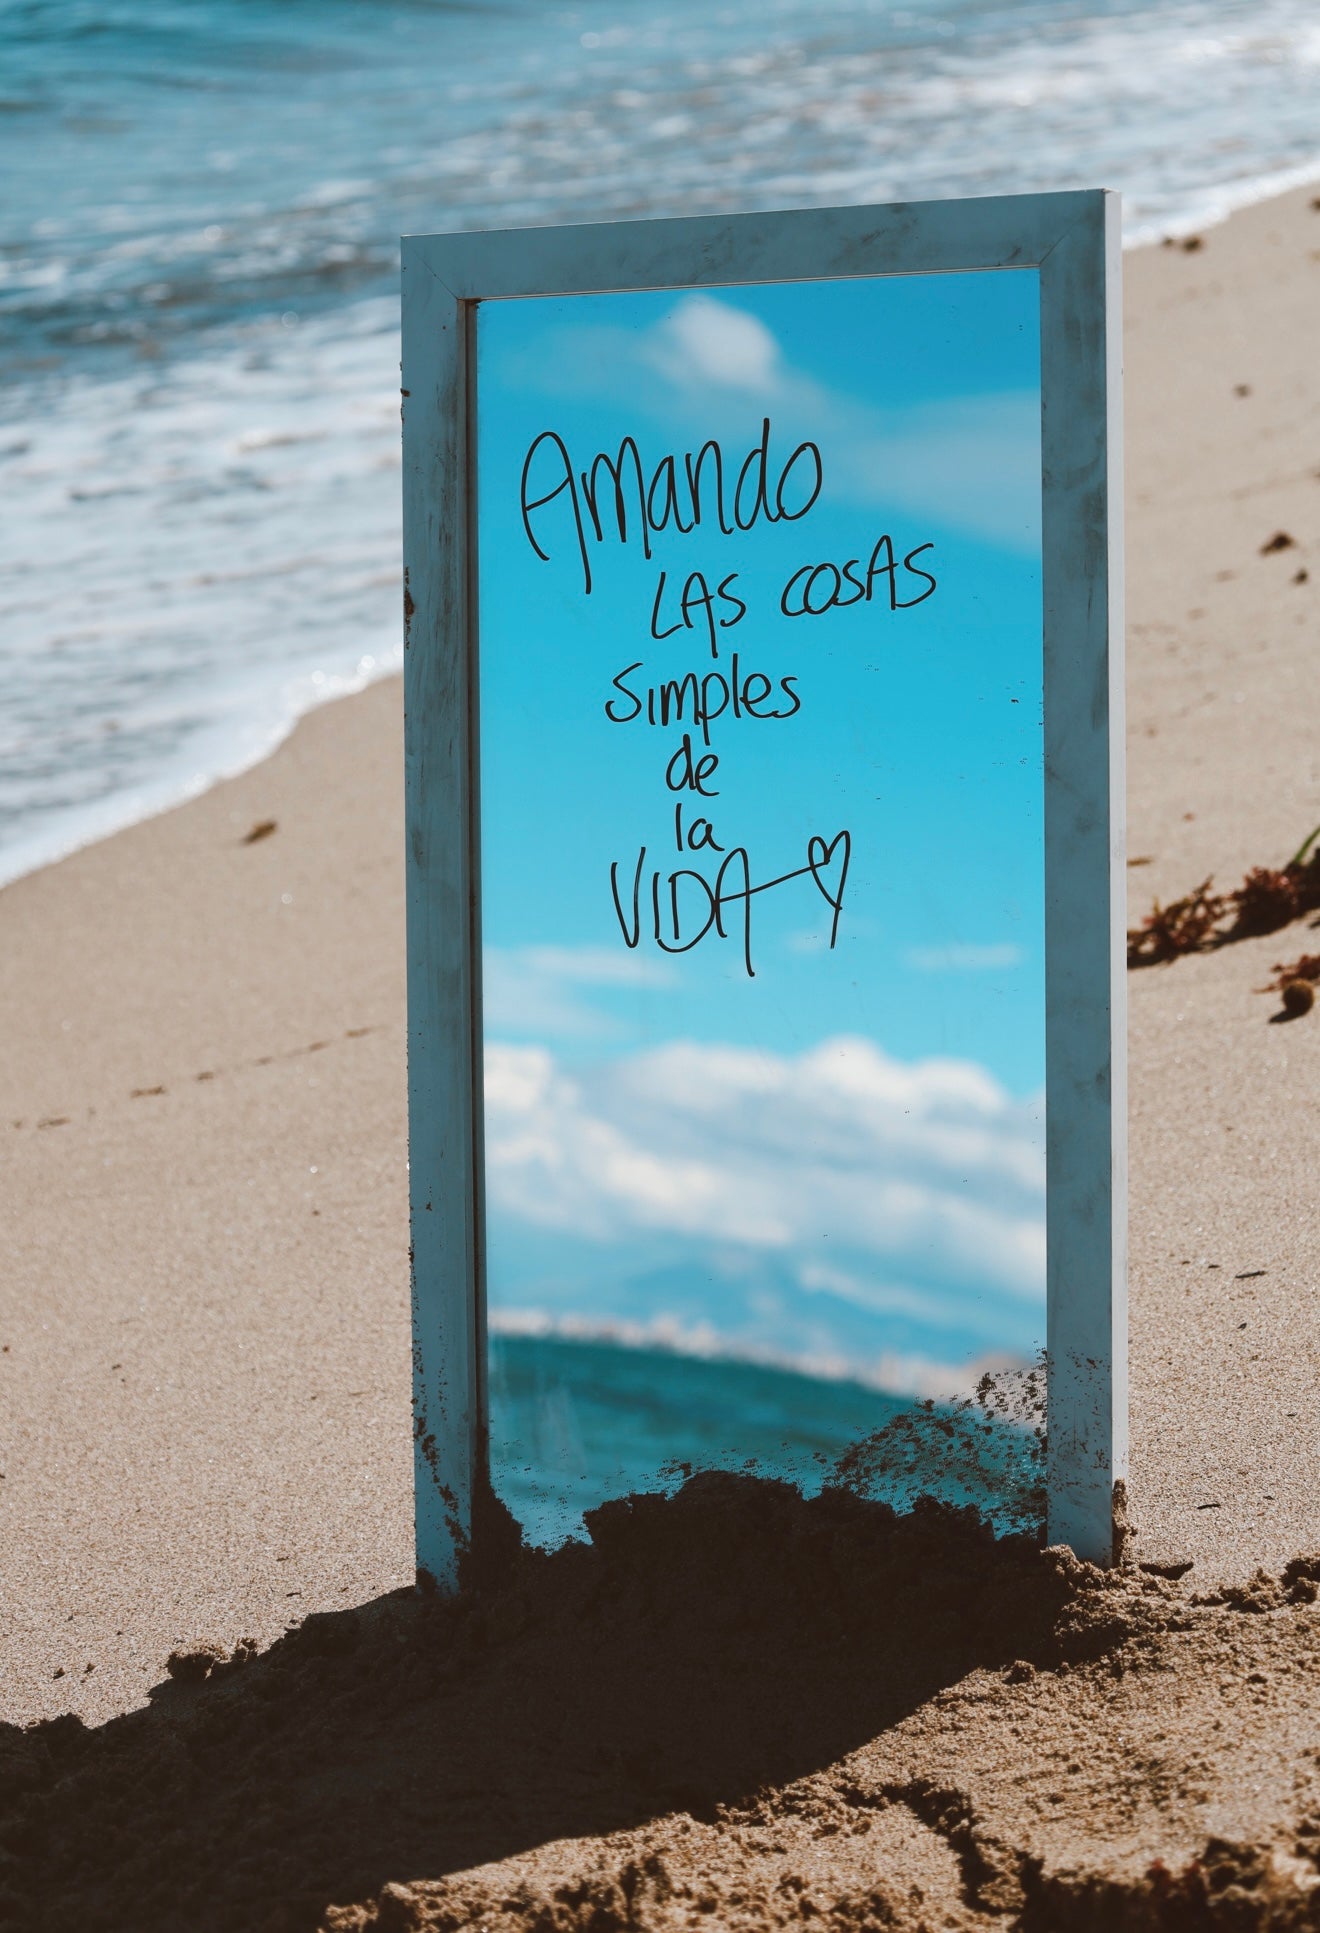 Amando
LAS cosAs
simples
de
la
VIDA